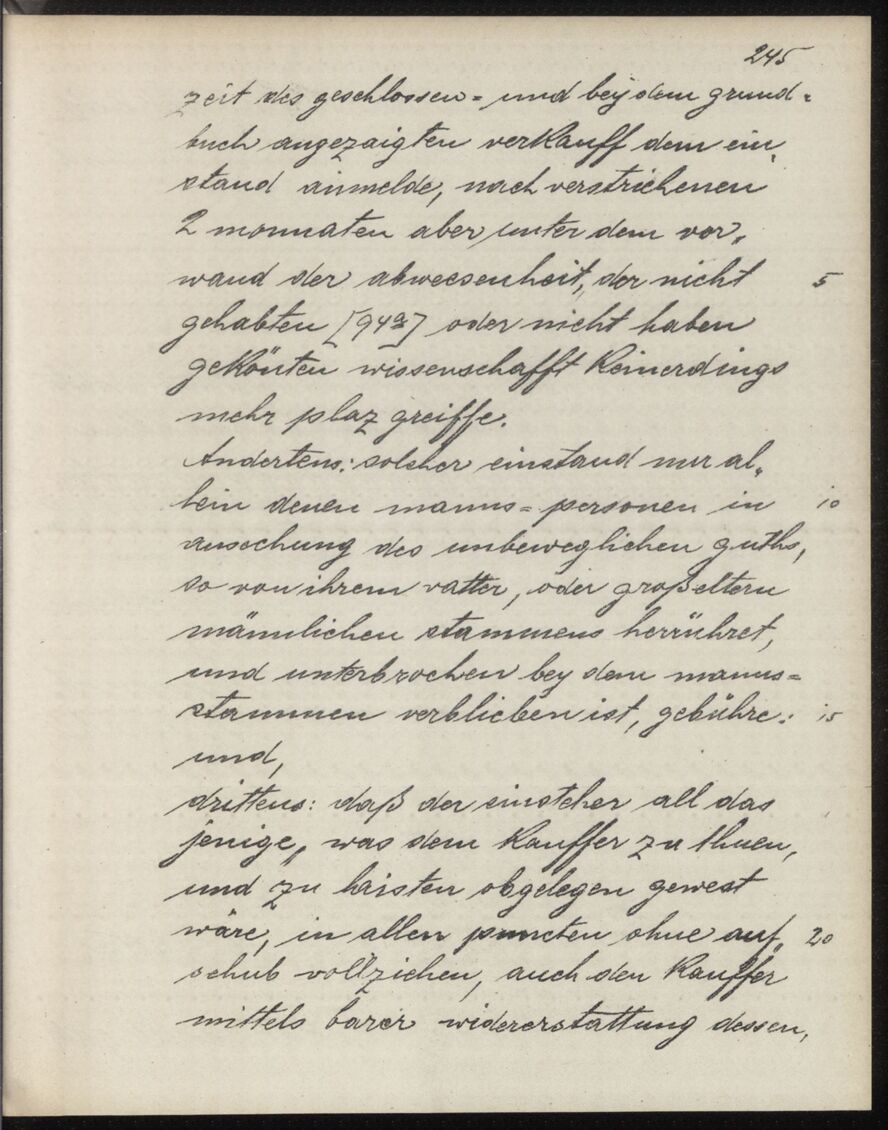 245
zeit des geschlossen= und bey dem grund=
buch angezaigten verkauff dem ein„
stand anmelde, nach verstrichenen
2 monnaten aber unter dem vor„
wand der abweesenheit, der nicht 5
gehabten [94a] oder nicht haben
gekönten wissenschafft keinerdings
mehr plaz greiffe.
Andertens: solcher einstand nur al„
lein denen manns=personen in 10
ansechung des unbeweglichen guths,
so von ihrem vatter, oder großeltern
männlichen stammens herrühret,
und unterbrochen bey dem manns=
stammen verblieben ist, gebühre: 15
und,
drittens: daß der einsteher all das
jenige, was dem kauffer zu thuen,
und zu laisten obgelegen gewest
wäre, in allen puncten ohne auf„ 20
schub vollziehen, auch den kauffer
mittels barer widererstattung dessen,